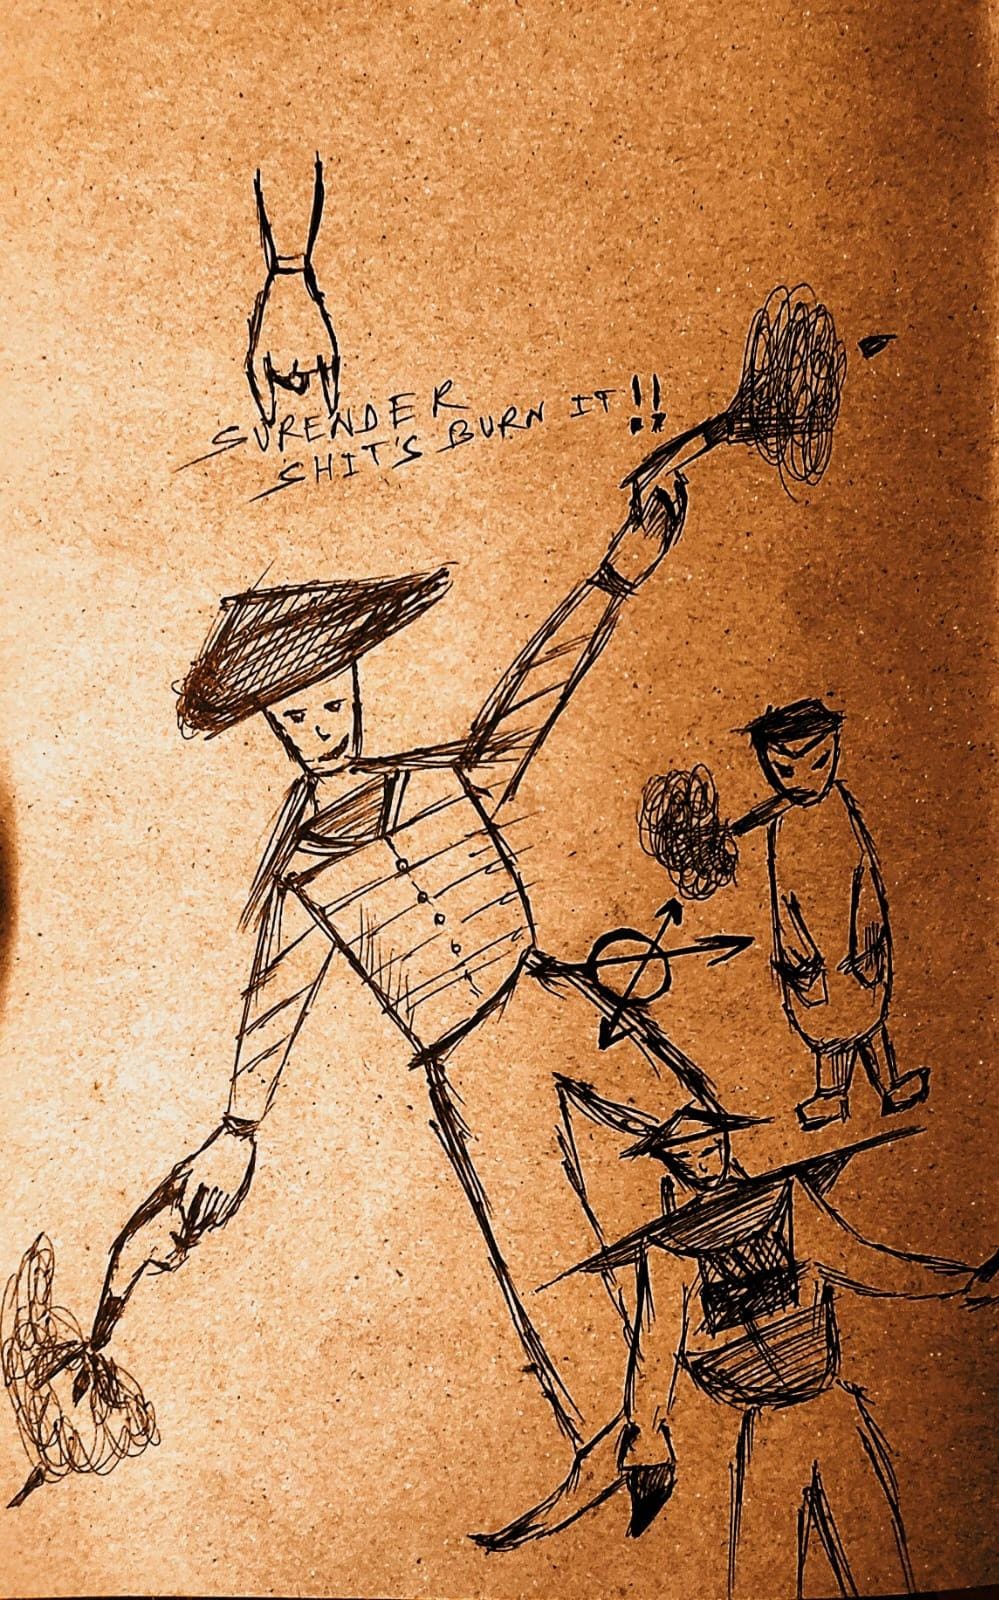 SURENDER
SHIT'S BURN IT!!